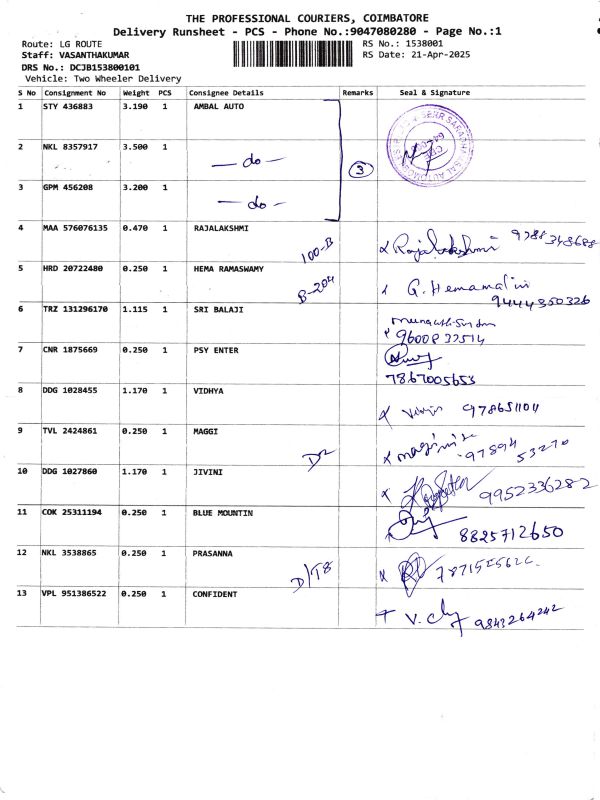 THE PROFESSIONAL COURIERS, COIMBATORE
Delivery Runsheet - PCS - Phone No.:9047080280 - Page No.:1
Route: LG ROUTE RS No.: 1538001
Staff: VASANTHAKUMAR RS Date: 21-Apr-2025
DRS No.: DCJB153800101
Vehicle: Two Wheeler Delivery
S No Consignment No Weight PCS Consignee Details Remarks Seal & Signature
1 STY 436883 3.190 1 AMBAL AUTO
2 NKL 8357917 3.500 1 — do — 3
3 GPM 456208 3.200 1 — do —
4 MAA 576076135 0.470 1 RAJALAKSHMI 100-B Rajalakshmi 9788348688
5 HRD 20722480 0.250 1 HEMA RAMASWAMY B-204 G. Hemamalini
9444350326
6 TRZ 131296170 1.115 1 SRI BALAJI
7 CNR 1875669 0.250 1 PSY ENTER
7867005653
8 DDG 1028455 1.170 1 VIDHYA
9 TVL 2424861 0.250 1 MAGGI 97894
53270
10 DDG 1027860 1.170 1 JIVINI 9952336282
11 COK 25311194 0.250 1 BLUE MOUNTIN 8825712650
12 NKL 3538865 0.250 1 PRASANNA
13 VPL 951386522 0.250 1 CONFIDENT 9843264242